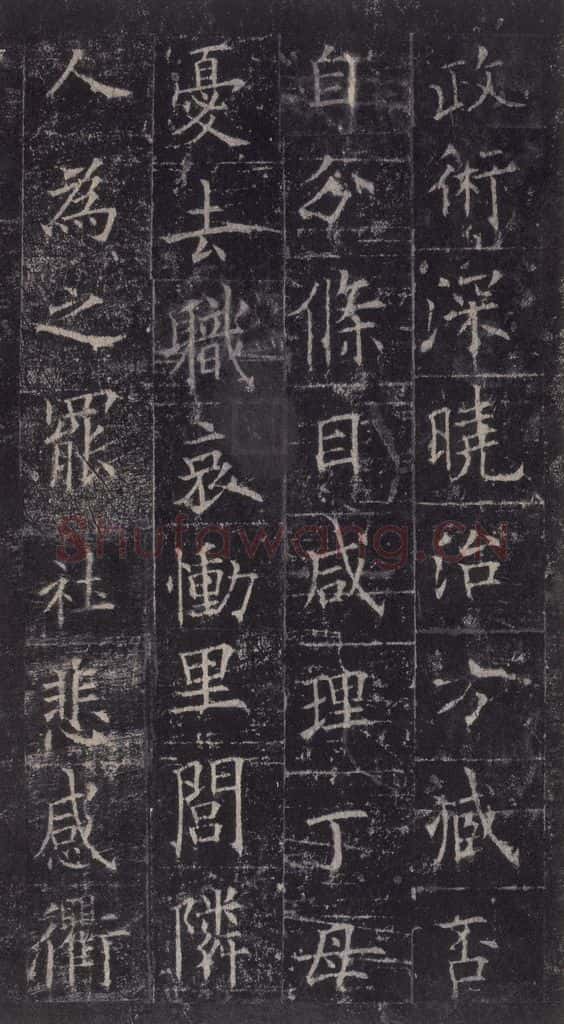 政術深曉治方臧否
自分條目咸理丁母
憂去職哀慟里閭隣
人為之罷社悲感衢
Shufawang.CN